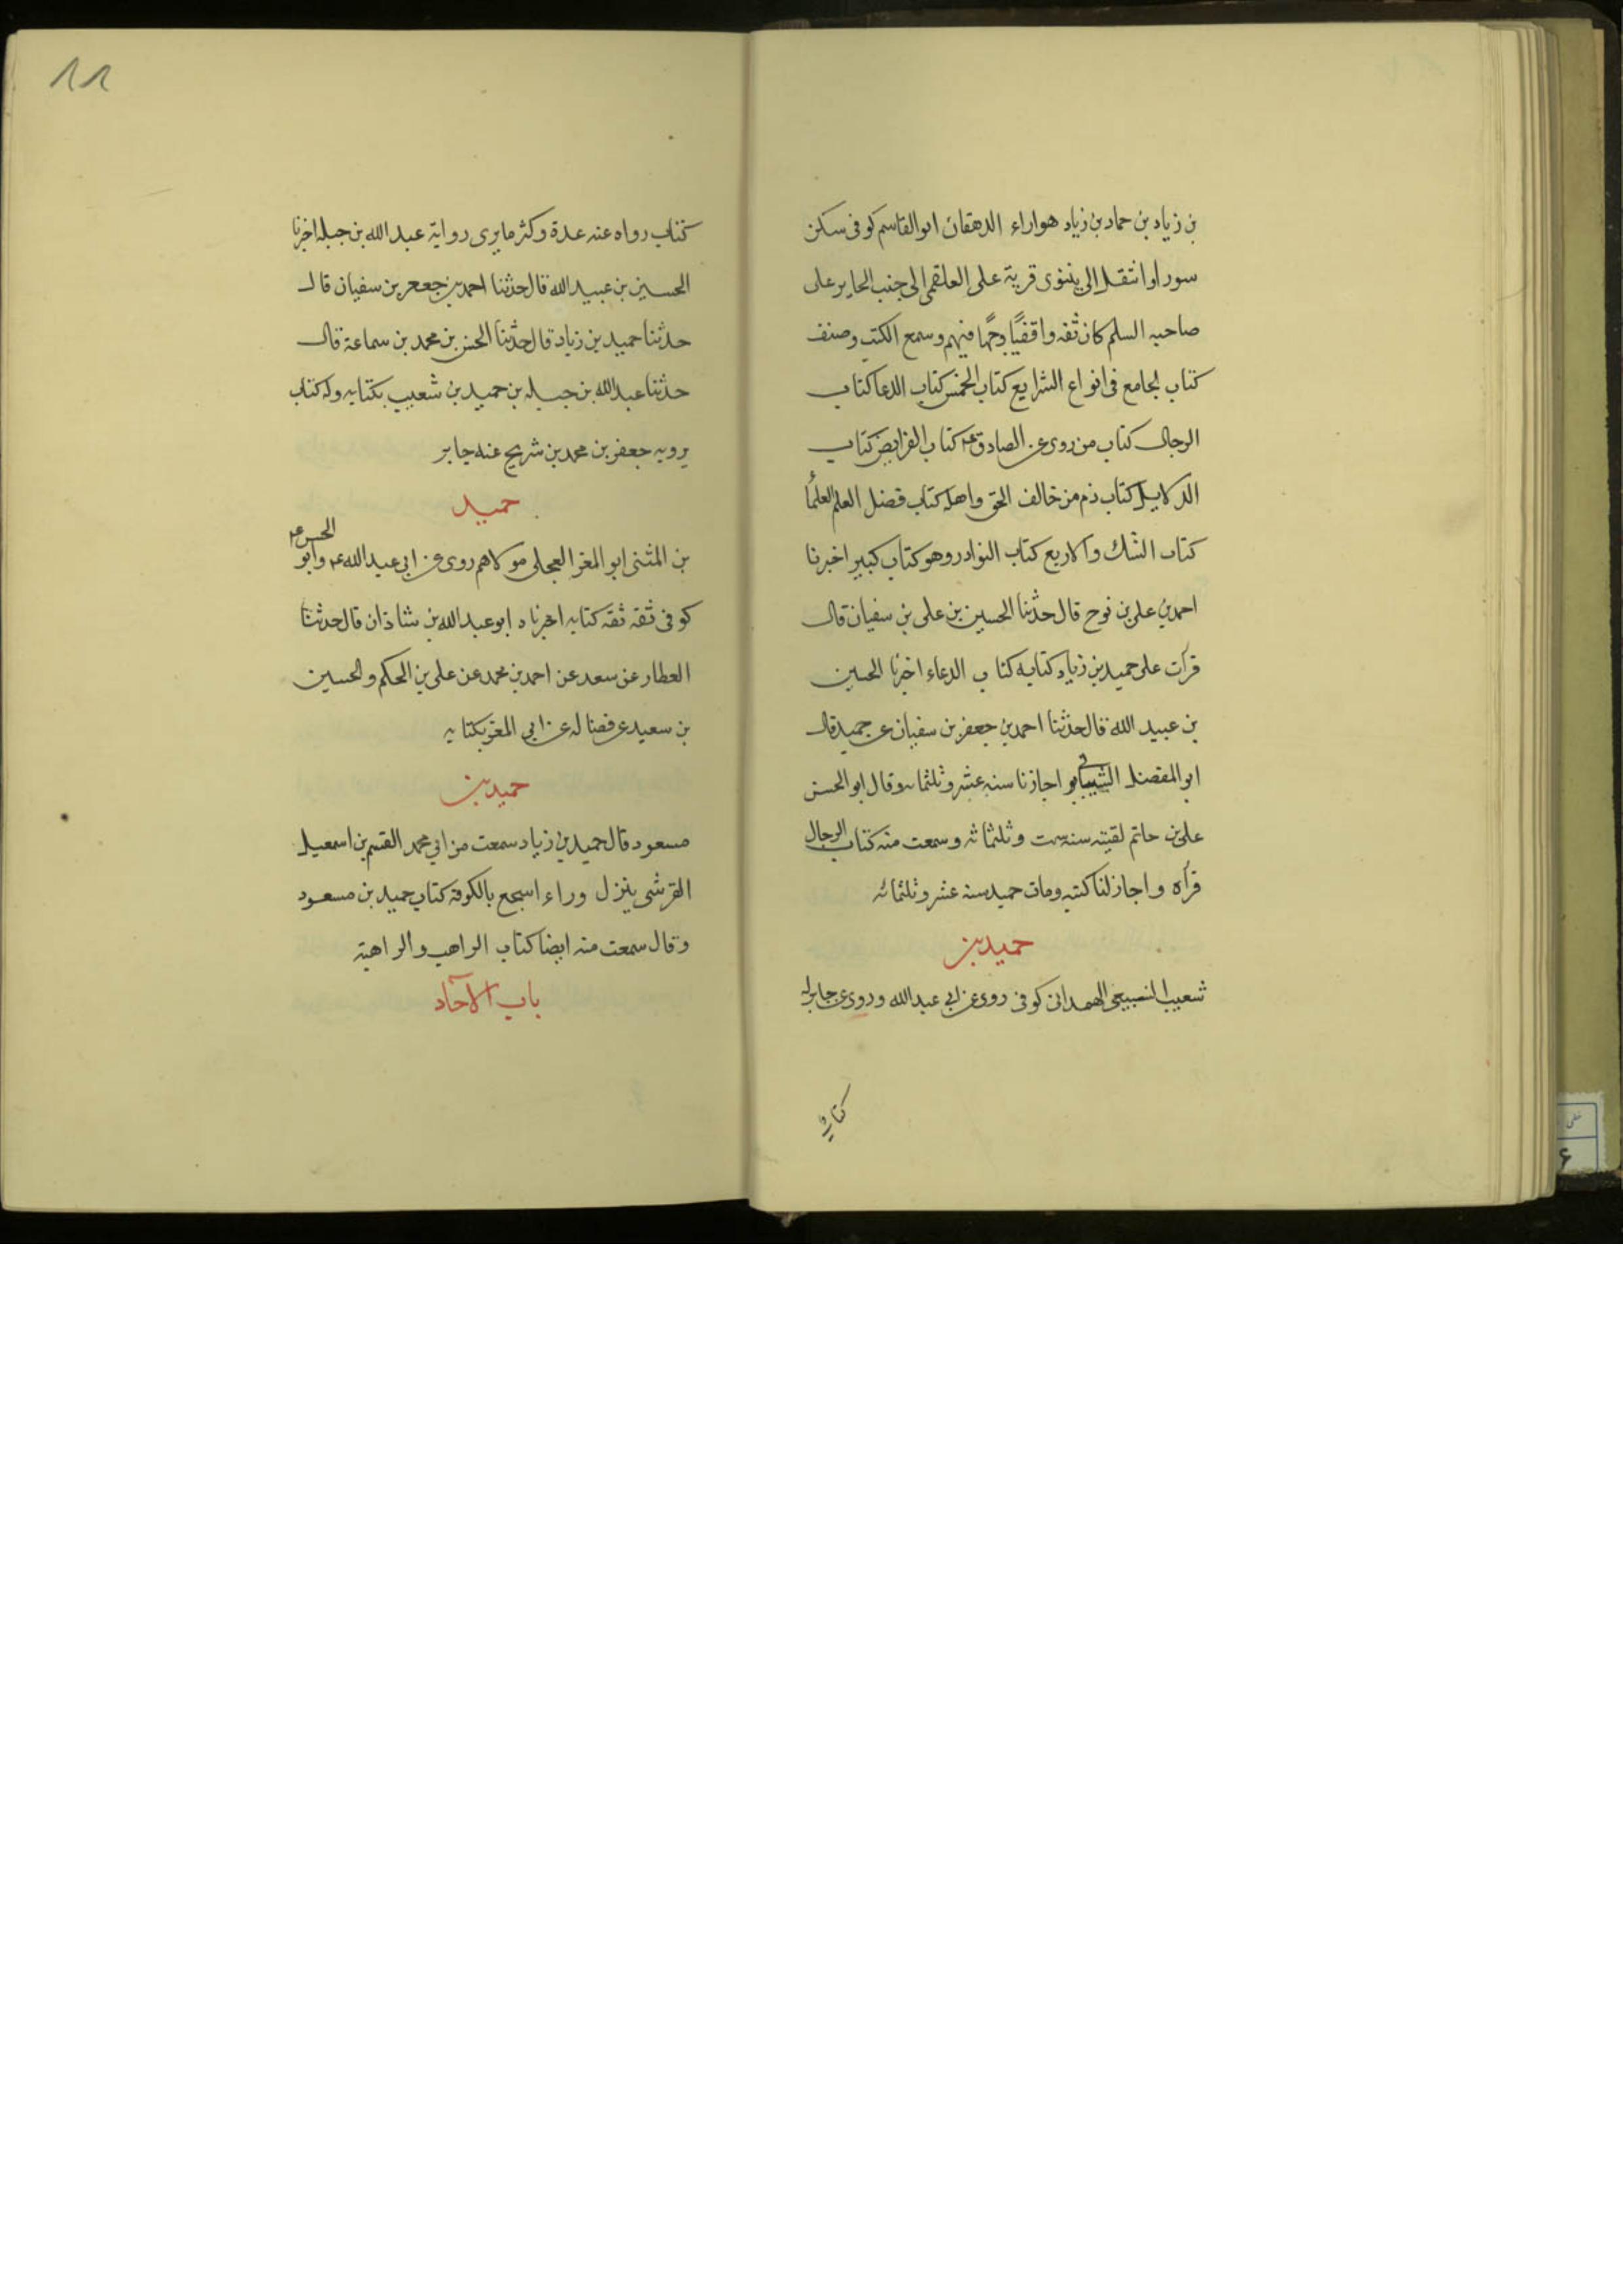 بن زیاد بن حماد بن زیاد هواراء الدهقان ابوالقاسم کوفی سکن
سورا وانتقل الی نینوی قریة علی العلقمی الی جنب الحایر علی
صاحبه السلم کان ثقه واقفیًا وجهًا فیهم وسمع الکتب وصنف
کتاب الجامع فی انواع الشرایع کتاب الخمس کتاب الدعا کتاب
الرجال کتاب من روی عن الصادق ع کتاب الفرایض کتاب
الدلایل کتاب ذم من خالف الحق واهله کتاب فضل العلم العلمأ
کتاب الثلث والاربع کتاب النوادر وهو کتاب کبیر اخبرنا
احمد بن علی بن نوح قال حدثنا الحسین بن علی بن سفیان قال
قرأت علی حمید بن زیاد کتابه کتاب الدعاء اخبرنا الحسین
بن عبید الله قال حدثنا احمد بن جعفر بن سفیان عن حمید قال
ابو المفضل الشیبانی اجازنا سنه عشر وثلثمایه وقال ابو الحسن
علی بن حاتم لقیته سنه ست وثلثمائه وسمعت منه کتاب الرجال
قرأة واجاز لنا کتبه ومات حمید سنه عشر وثلثمائه
حمید بن
شعیب السبیعی الهمدانی کوفی روی عن ابی عبدالله وروی عن جابر له
کتاب
۸۸
کتاب رواه عنه عدة وکثر ما یری روایة عبدالله بن جبله اخبرنا
الحسین بن عبیدالله قال حدثنا احمد بن جعفر بن سفیان قال
حدثنا حمید بن زیاد قال حدثنا الحسن بن محمد بن سماعة قال
حدثنا عبدالله بن جبله بن حمید بن شعیب بکتابه وله کتاب
یرویه جعفر بن محمد بن شریح عنه جابر
حمید
بن المثنی ابو المغرا العجلی مولاهم روی عن ابی عبدالله ع وابو الحسن ع
کوفی ثقه ثقه کتابه اخبرناه ابو عبدالله بن شاذان قال حدثنا
العطار عن سعد عن احمد بن محمد عن علی بن الحکم والحسین
بن سعید عن فضاله عن ابی المغر بکتابه
حمید بن
مسعود قال حمید بن زیاد سمعت من ابی محمد القسم بن اسمعیل
القرشی ینزل وراء اسجع بالکوفة کتاب حمید بن مسعود
وقال سمعت منه ایضا کتاب الراهب والراهبة
باب الآحاد